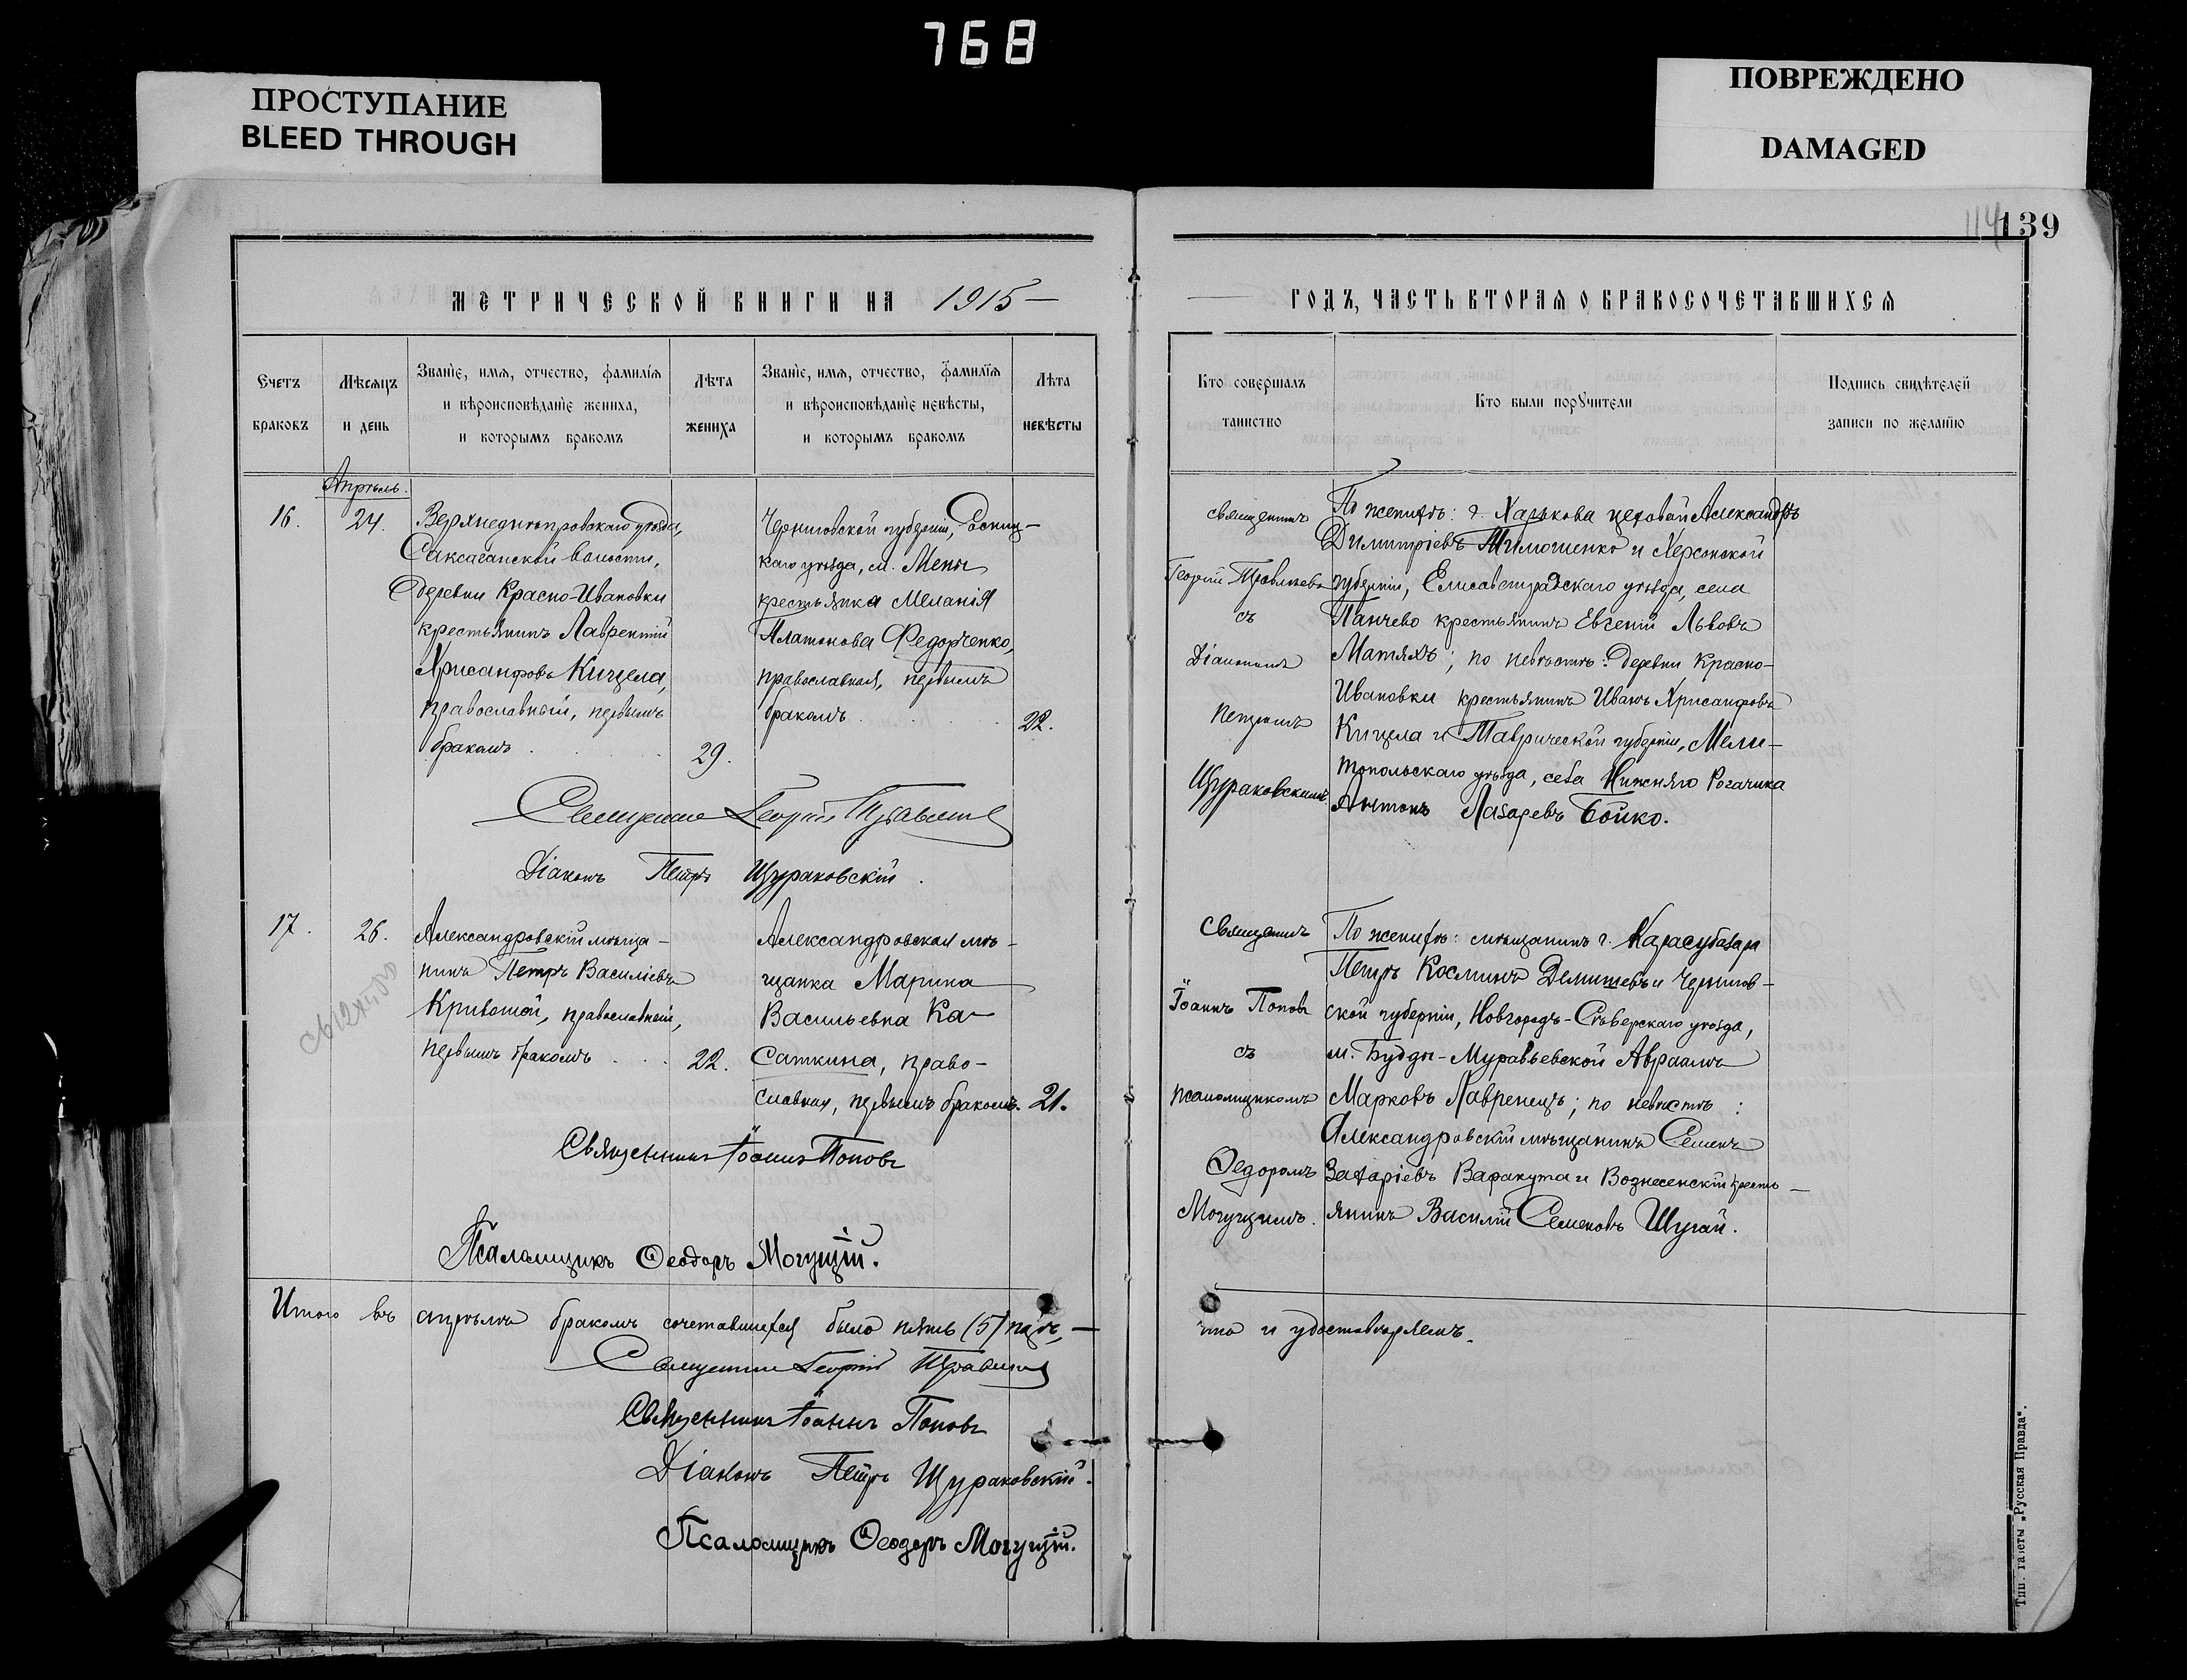 768
ПРОСТУПАНИЕ
BLEED THROUGH
ПОВРЕЖДЕНО
DAMAGED
114
139
МЕТРИЧЕСКОЙ КНИГИ НА 1915
ГОДЪ, ЧАСТЬ ВТОРАЯ О БРАКОСОЧЕТАВШИХСЯ
Счетъ
браковъ
Мѣсяцъ
и день
Званїе, имя, отчество, фамилїя
и вѣроисповѣданїе жениха,
и которымъ бракомъ
Лѣта
жениха
Званїе, имя, отчество, фамилїя
и вѣроисповѣданїе невѣсты,
и которымъ бракомъ
Лѣта
невѣсты
Кто совершалъ
таинство
Кто были порꙋчители
Подпись свидѣтелей
записи по желанїю
Апрѣль.
16.
24.
Верхнеднѣпровскаго уѣзда,
Саксаганской волости,
деревни Красно-Ивановки
крестьянинъ Лаврентій
Хрисанфовъ Кицела,
православный, первымъ
бракомъ
29.
Черниговской губерніи, Сосниц-
каго уѣзда, м. Мены
крестьянка Меланія
Платонова Федорченко,
православная, первымъ
бракомъ
22.
Священникъ
Георгій
съ
Діакономъ
Петромъ
Щураковскимъ.
По женихѣ: г. Харькова цеховой Александръ
Димитріевъ Тимошенко и Херсонской
губерніи, Елисаветградскаго уѣзда, села
Панчево крестьянинъ Евгеній Львовъ
Матяхъ; по невѣстѣ: деревни Красно-
Ивановки крестьянинъ Иванъ Хрисанфовъ
Кицела и Таврической губерніи, Мели-
топольскаго уѣзда, села Нижняго Рогачика
Антонъ Лазаревъ Бойко.
Священникъ Георгій
Діаконъ Петръ Щураковскій.
17.
26.
Александровскій мѣща-
нинъ Петръ Василіевъ
Кривошой, православный,
первымъ бракомъ
22.
Александровская мѣ-
щанка Марина
Васильевна Ка-
саткина, право-
славная, первымъ бракомъ.
21.
Священникъ
Іоаннъ Поповъ
съ
псаломщикомъ
Ѳедоромъ
Могущимъ.
По женихѣ: мѣщанинъ г. Карасубазара
Петръ Косминъ Демишевъ и Чернигов-
ской губерніи, Новгородъ-Сѣверскаго уѣзда,
м. Будды-Муравьевской Авраамъ
Марковъ Лавренецъ; по невѣстѣ:
Александровскій мѣщанинъ Семенъ
Захаріевъ Варакута и Вознесенскій кресть-
янинъ Василій Семеновъ Шугай.
Священникъ Іоаннъ Поповъ
Псаломщикъ Ѳеодоръ Могущій.
Итого въ апрѣлѣ бракомъ сочетавшихся было пять (5) паръ, —
что и удостовѣряемъ.
Священникъ Георгій
Священникъ Іоаннъ Поповъ
Діаконъ Петръ Щураковскій.
Псаломщикъ Ѳеодоръ Могущій.
Тип. газеты „Русская Правда“.